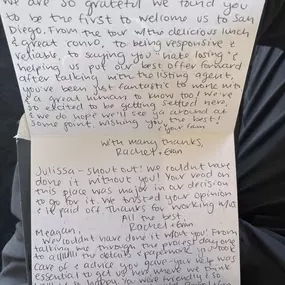 We are so grateful we found you
to be the first to welcome us to San
Diego. From the tour w/the delicious lunch
& great convo, to being responsive &
reliable, to saying you "hate losing" &
helping us put our best offer forward
after talking with the listing agent,
you've been just fantastic to work with
& a great human to know too! We're
so excited to be getting settled here,
& we do hope we'll see ya around at
some point. Wishing you the best!
& your fam
With many thanks,
Rachel + Evan
Julissa - shout out! We couldn't have
done it without you! Your word on
this place was major in our decision
to go for it. We trusted your opinion
& it paid off. Thanks for working
All the best,
Rachel + Evan
Meagan,
We couldn't have done it w/out you! From
talking me through the process day one
to all the details & paperwork
care of & advice you gave, your help was
essential to get us where we